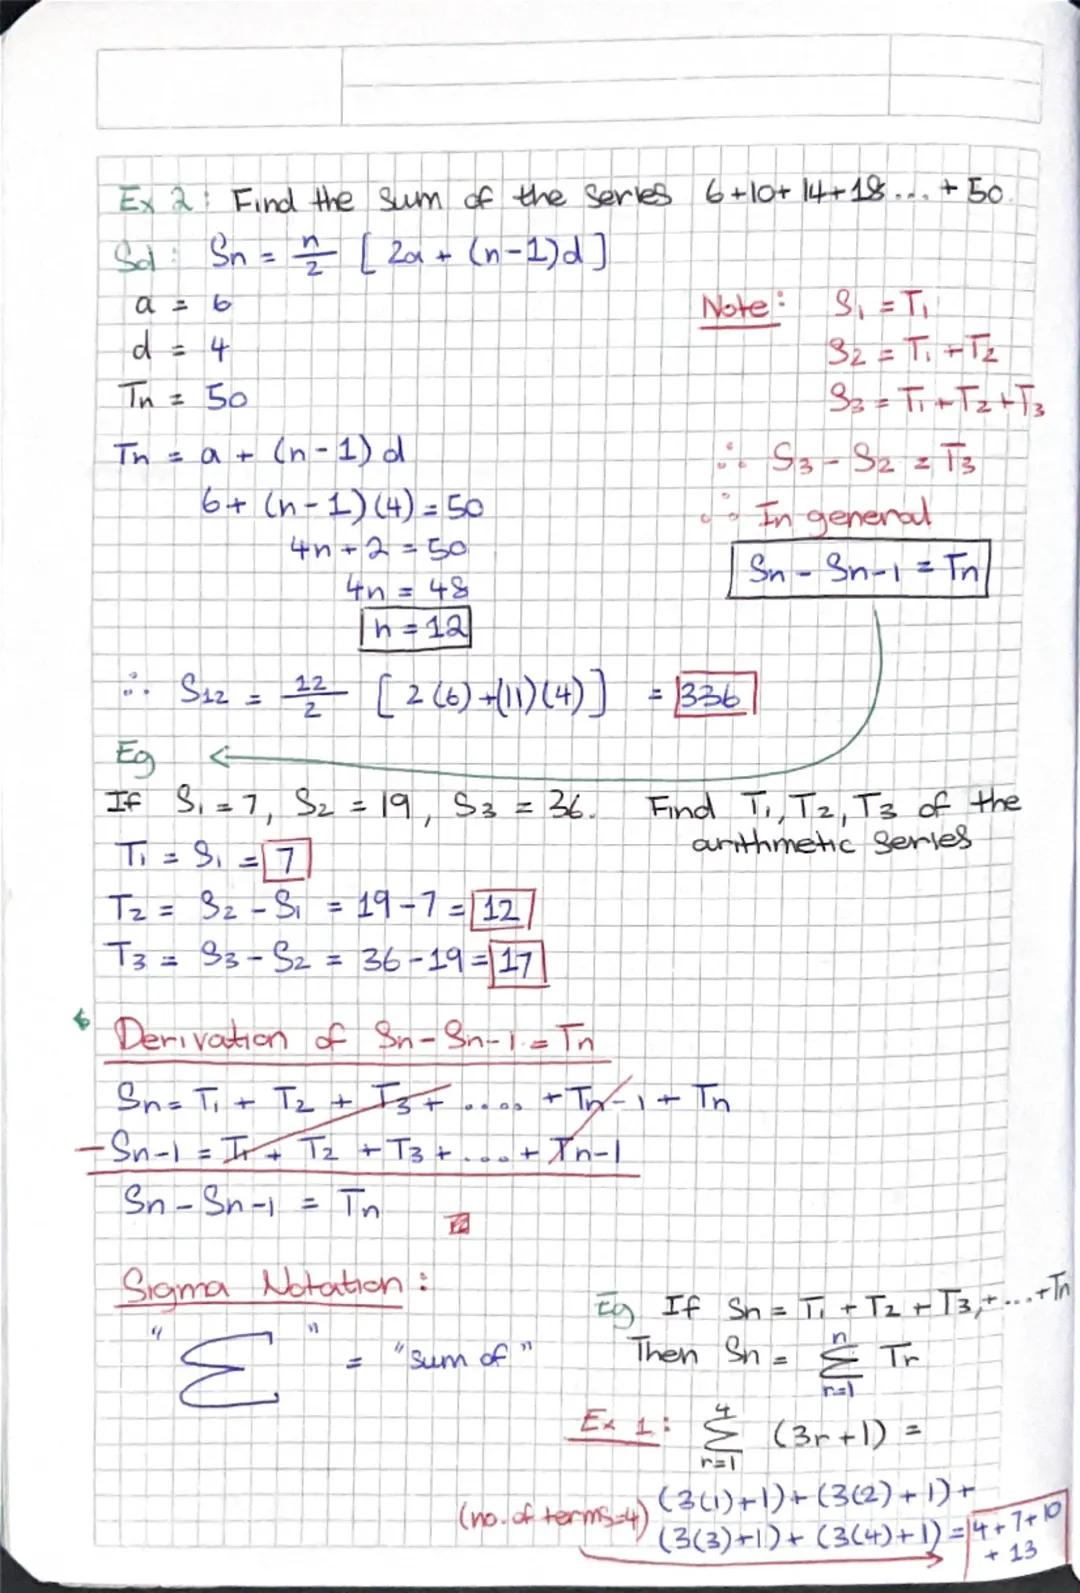 Ex 2: Find the sum of the series 6+10+14+18... + 50.
Sol: Sn = n/2 [2a + (n-1)d]
a = 6
d = 4
Tn = 50
Note: S₁ = T₁
S₂ = T₁ + T₂
S₃ = T₁ + T₂ + T₃
∴ S₃ - S₂ = T₃
∴ In general
Sn - Sn-1 = Tn
Tn = a + (n-1)d
6 + (n-1)(4) = 50
4n + 2 = 50
4n = 48
n = 12
∴ S₁₂ = 12/2 [2(6)+(11)(4)] = 336
Eg
If S₁ = 7, S₂ = 19, S₃ = 36. Find T₁, T₂, T₃ of the
arithmetic series
T₁ = S₁ = 7
T₂ = S₂ - S₁ = 19-7 = 12
T₃ = S₃ - S₂ = 36-19 = 17
Derivation of Sn - Sn-1 = Tn
Sn = T₁ + T₂ + T₃ + .... + Tn-1 + Tn
- Sn-1 = T₁ + T₂ + T₃ + ... + Tn-1
Sn - Sn-1 = Tn
Sigma Notation:
"Σ" = "sum of"
Eg If Sn = T₁ + T₂ + T₃, + ... + Tn
Then Sn = n Σ r=1 Tr
Ex 1: 4 Σ r=1 (3r+1) =
(no. of terms=4) (3(1)+1) + (3(2)+1) +
(3(3)+1) + (3(4)+1) = 4+7+10
+ 13